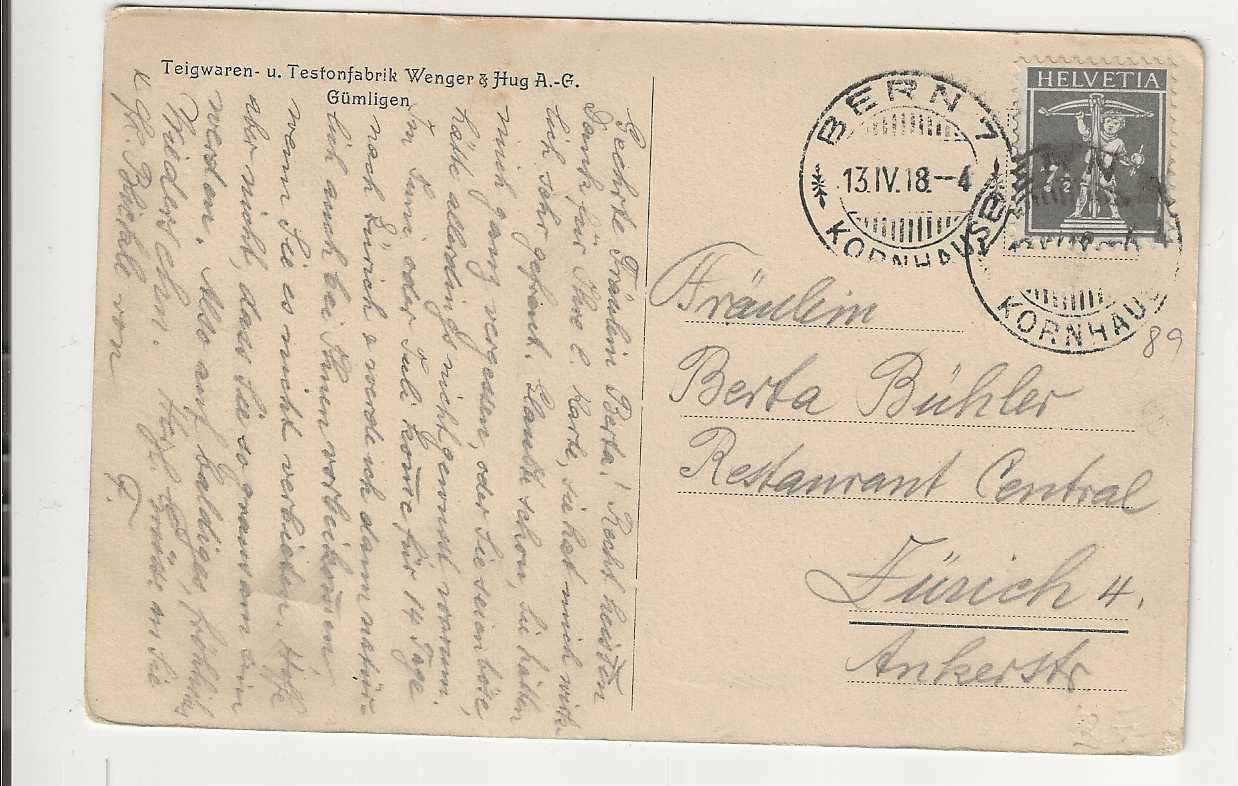 Teigwaren- u. Testonfabrik Wenger & Hug A.-G.
Gümligen
HELVETIA
7½
BERN 7
13.IV.18.-4
KORNHAUS
KORNHAUS
89
Fräulein
Berta Bühler
Restaurant Central
Zürich 4.
Ankerstr
Geehrte Fräulein Berta! Recht besten
Dank für Ihre l. Karte, sie hat mich wirk-
lich sehr gefreut. Glaubte schon, Sie hätten
mich ganz vergessen, oder Sie seien böse,
hätte allerdings nicht gewusst warum.
Im Juni oder Juli kome für 14 Tage
nach Zürich & werde ich dann natür-
lich auch bei Ihnen vorbeikomen
wenn Sie es mir nicht verbieten. Hoffe
aber nicht, dass Sie so grausam sein
werden. Also auf baldiges, fröhliches
Wiedersehen. Herzl. Grüsse an Sie
von
F.